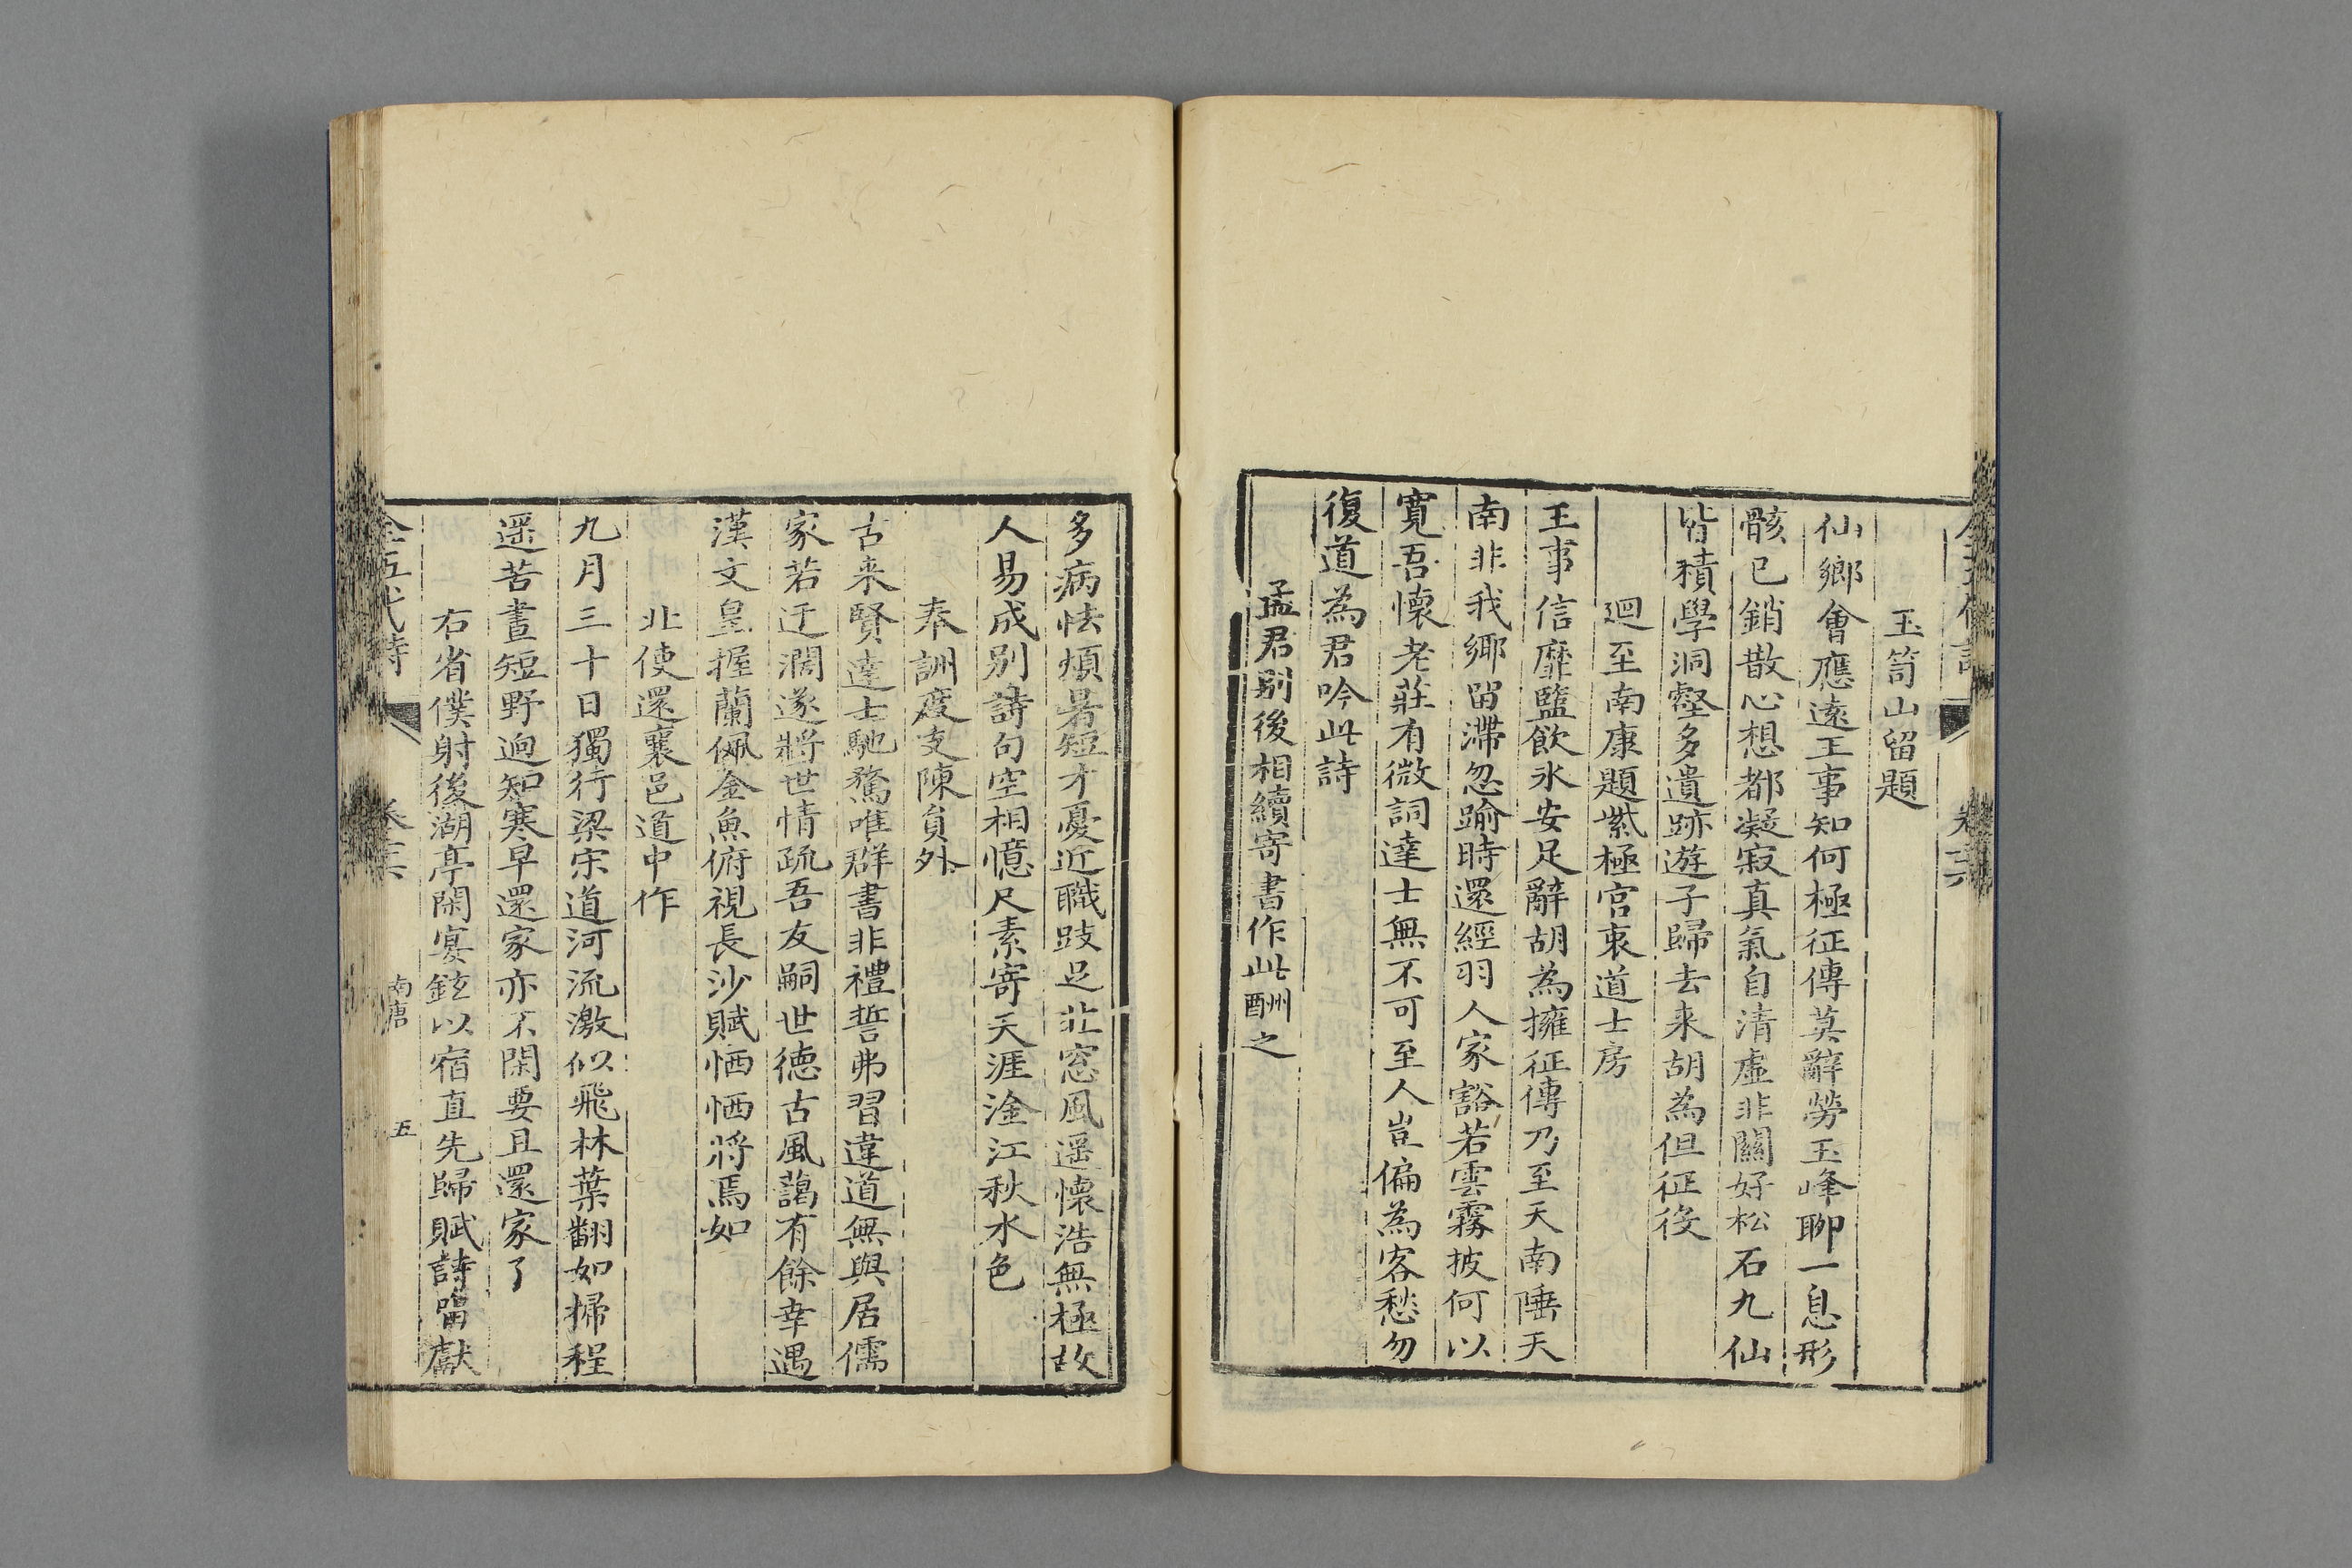 卷六
玉笥山留題
仙鄉會應遠王事知何極征傳莫辭勞玉峰聊一息形
骸已銷散心想都凝寂真氣自清虛非關好松石九仙
皆積學洞壑多遺跡遊子歸去来胡為但征役
迴至南康題紫極宮裏道士房
王事信靡盬飲氷安足辭胡為擁征傳乃至天南陲天
南非我鄉留滯忽踰時還經羽人家豁若雲霧披何以
寬吾懷老莊有微詞達士無不可至人豈偏為客愁勿
復道為君吟此詩
孟君别後相續寄書作此酬之
多病怯煩暑短才憂近職跂足北窓風遥懷浩無極故
人易成别詩句空相憶尺素寄天涯淦江秋水色
奉詶度支陳負外
古来賢達士馳騖唯群書非禮誓弗習違道無與居儒
家若迂濶遂將世情疏吾友嗣世徳古風藹有餘幸遇
漢文皇握蘭佩金魚俯視長沙賦恓恓将焉如
北使還襄邑道中作
九月三十日獨行梁宋道河流激似飛林葉翻如掃程
遥苦晝短野迥知寒早還家亦不閑要且還家了
右省僕射後湖亭閑宴鉉以宿直先歸賦詩留獻
全五代詩 卷三六 南唐 五